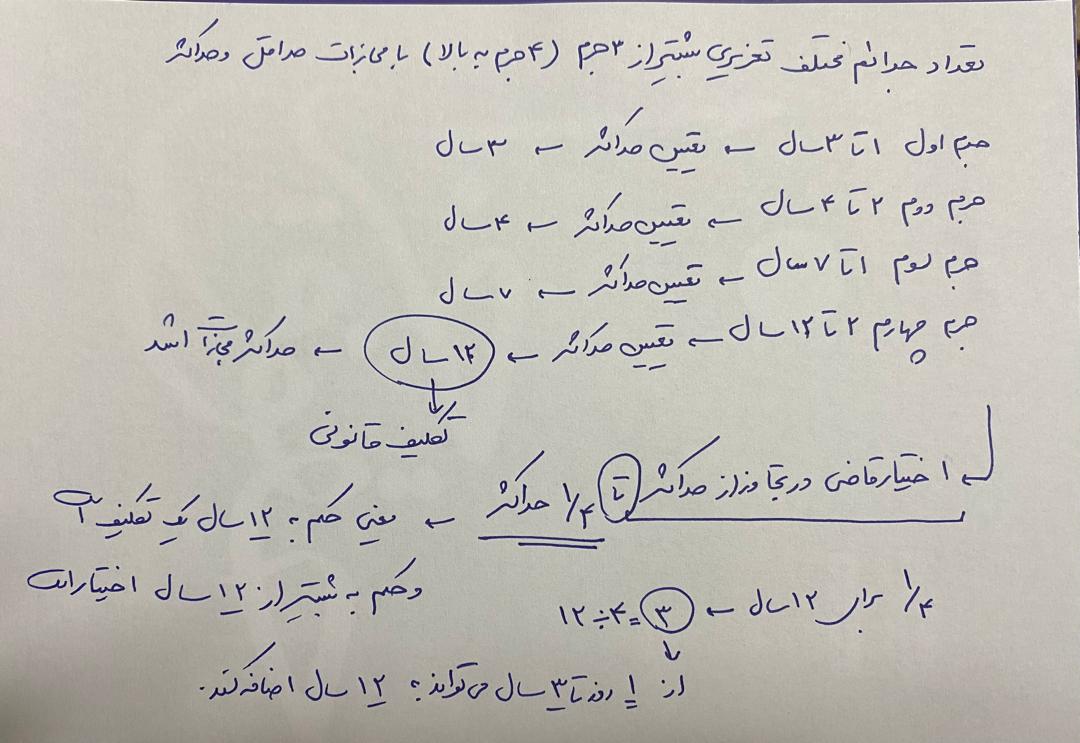 تعداد جرائم مختلف تعزیری بیشتر از ۳ جرم (۴ جرم به بالا) با مجازات حداقل و حداکثر
جرم اول ۱ تا ۳ سال ← تعیین حداکثر ← ۳ سال
جرم دوم ۲ تا ۴ سال ← تعیین حداکثر ← ۴ سال
جرم سوم ۱ تا ۷ سال ← تعیین حداکثر ← ۷ سال
جرم چهارم ۲ تا ۱۲ سال ← تعیین حداکثر ← ۱۲ سال ← حداکثر مجازات اشد
تکلیف قانونی
اختیار قاضی در تجاوز از حداکثر تا ۱/۴ حداکثر ← یعنی حکم به ۱۲ سال یک تکلیف است
و حکم به بیشتر از ۱۲ سال اختیار است
۱/۴ برای ۱۲ سال ← ۳ = ۴ ÷ ۱۲
از ۱ روز تا ۳ سال می‌تواند به ۱۲ سال اضافه کند.